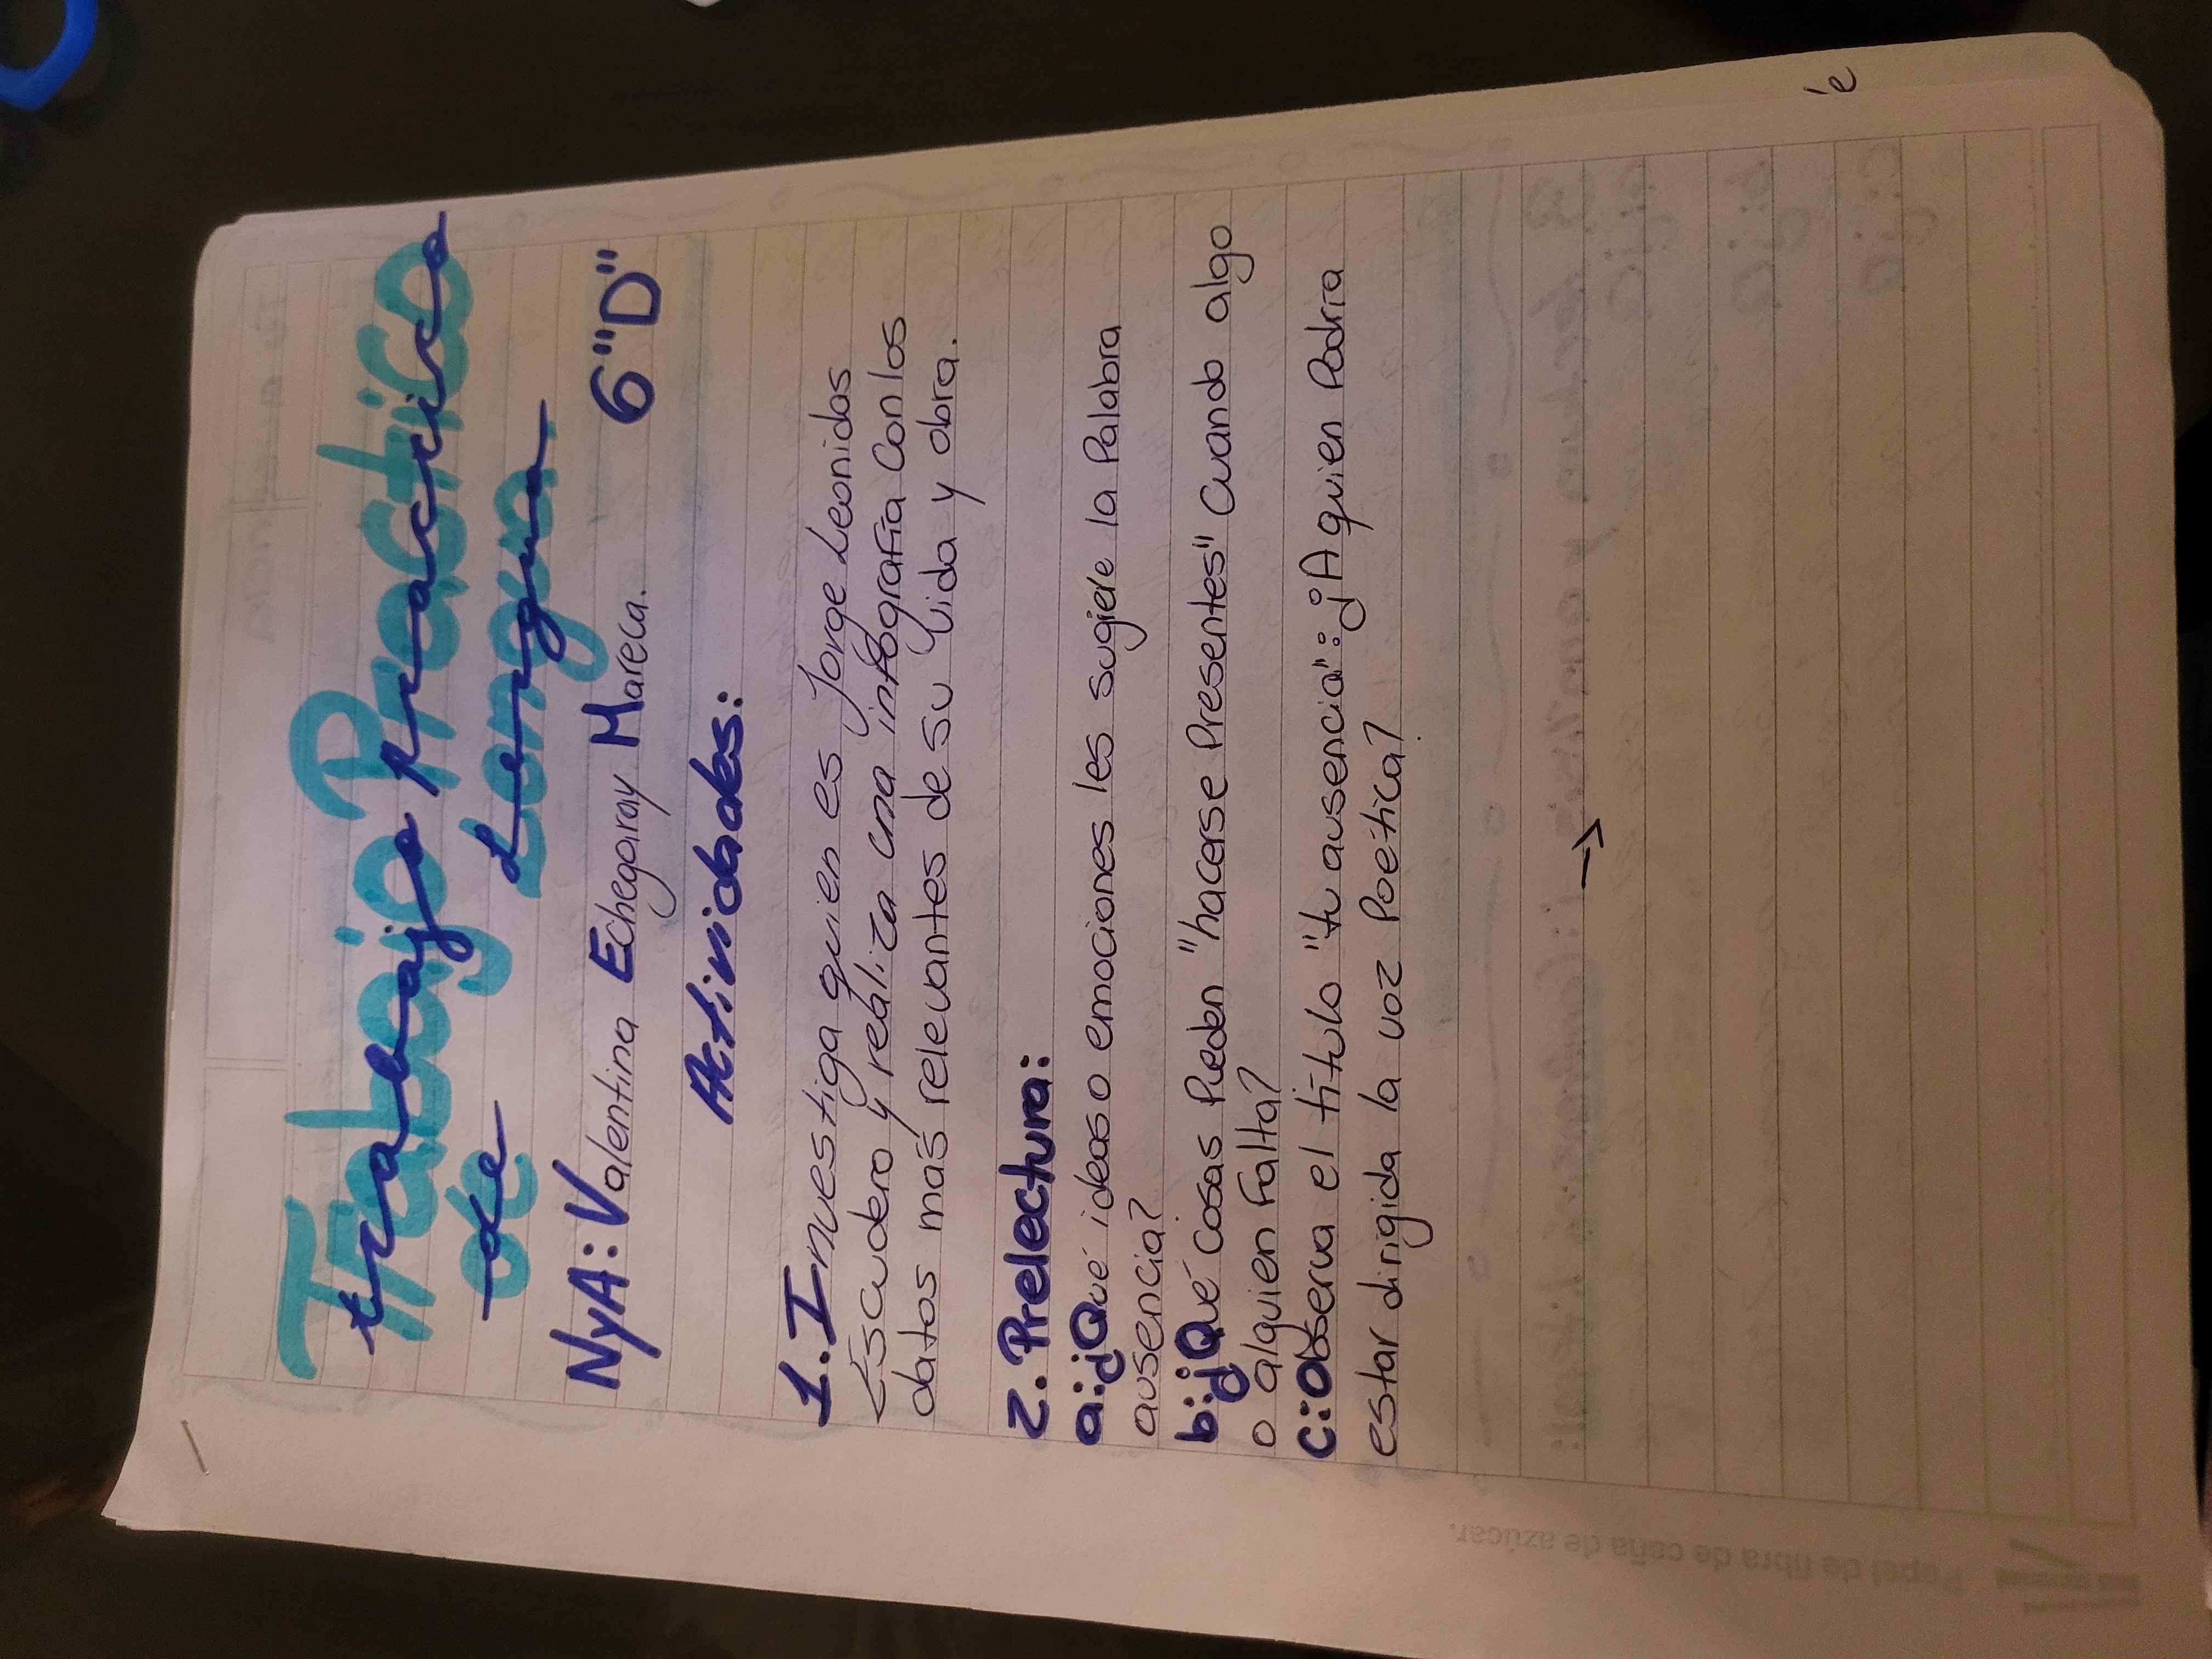 Trabajo Practico
de Lengua
NyA: Valentina Echegaray Mareca. 6"D"
Actividades:
1. Investiga quien es Jorge Leonidas
Escudero y realiza una infografía con los
datos más relevantes de su vida y obra.
2. Prelectura:
a: ¿Qué ideas o emociones les sugiere la Palabra
ausencia?
b: ¿Qué cosas Pueden "hacerse Presentes" cuando algo
o alguien Falta?
c: Observa el título "tu ausencia": ¿A quien Podría
estar dirigida la voz Poética?
→
Papel de fibra de caña de azúcar.